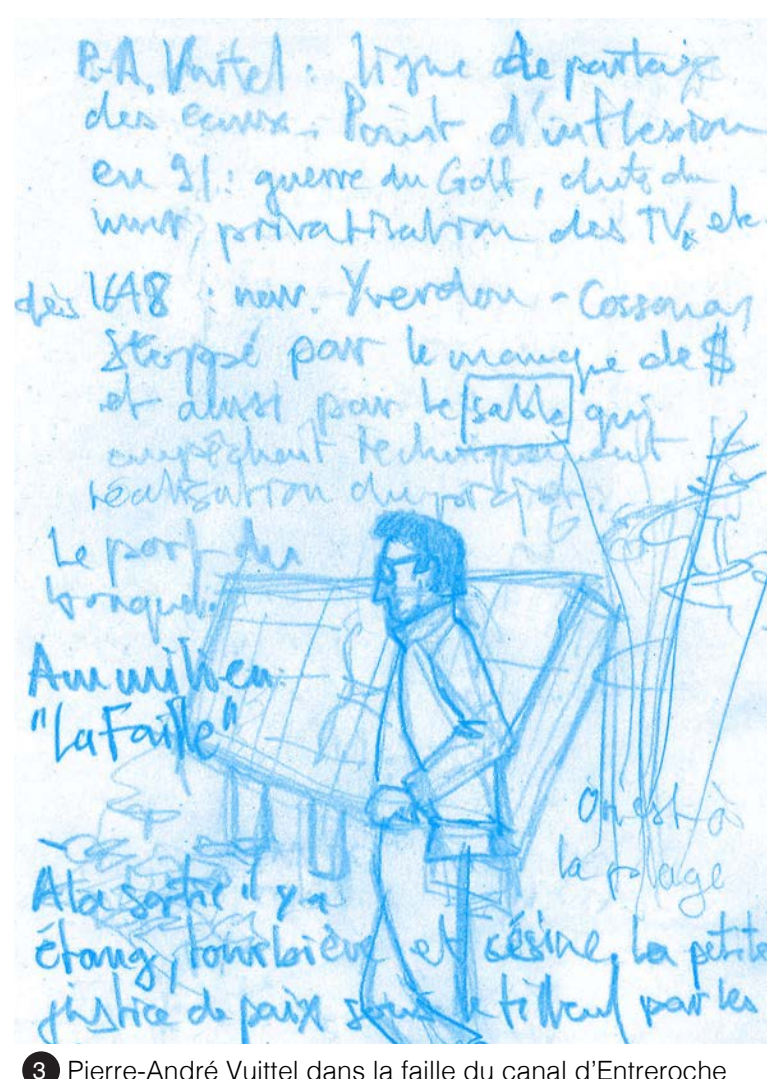 P.-A. Vuitel : ligne de partage
des eaux. Point d'inflexion
en 91 : guerre du Golf, chute du
mur, privatisation des TV, etc.
dès 1648 : nav. Yverdon - Cossonay
Stoppé par le manque de $
et aussi par le sable qui
empêchait techniquement
réalisation du projet.
Le port du
Au milieu
"La Faille"
On est à
la plage
A la sortie il y a
étang, tourbière et
La petite
justice de paix sous le tilleul par les
3 Pierre-André Vuittel dans la faille du canal d'Entreroche